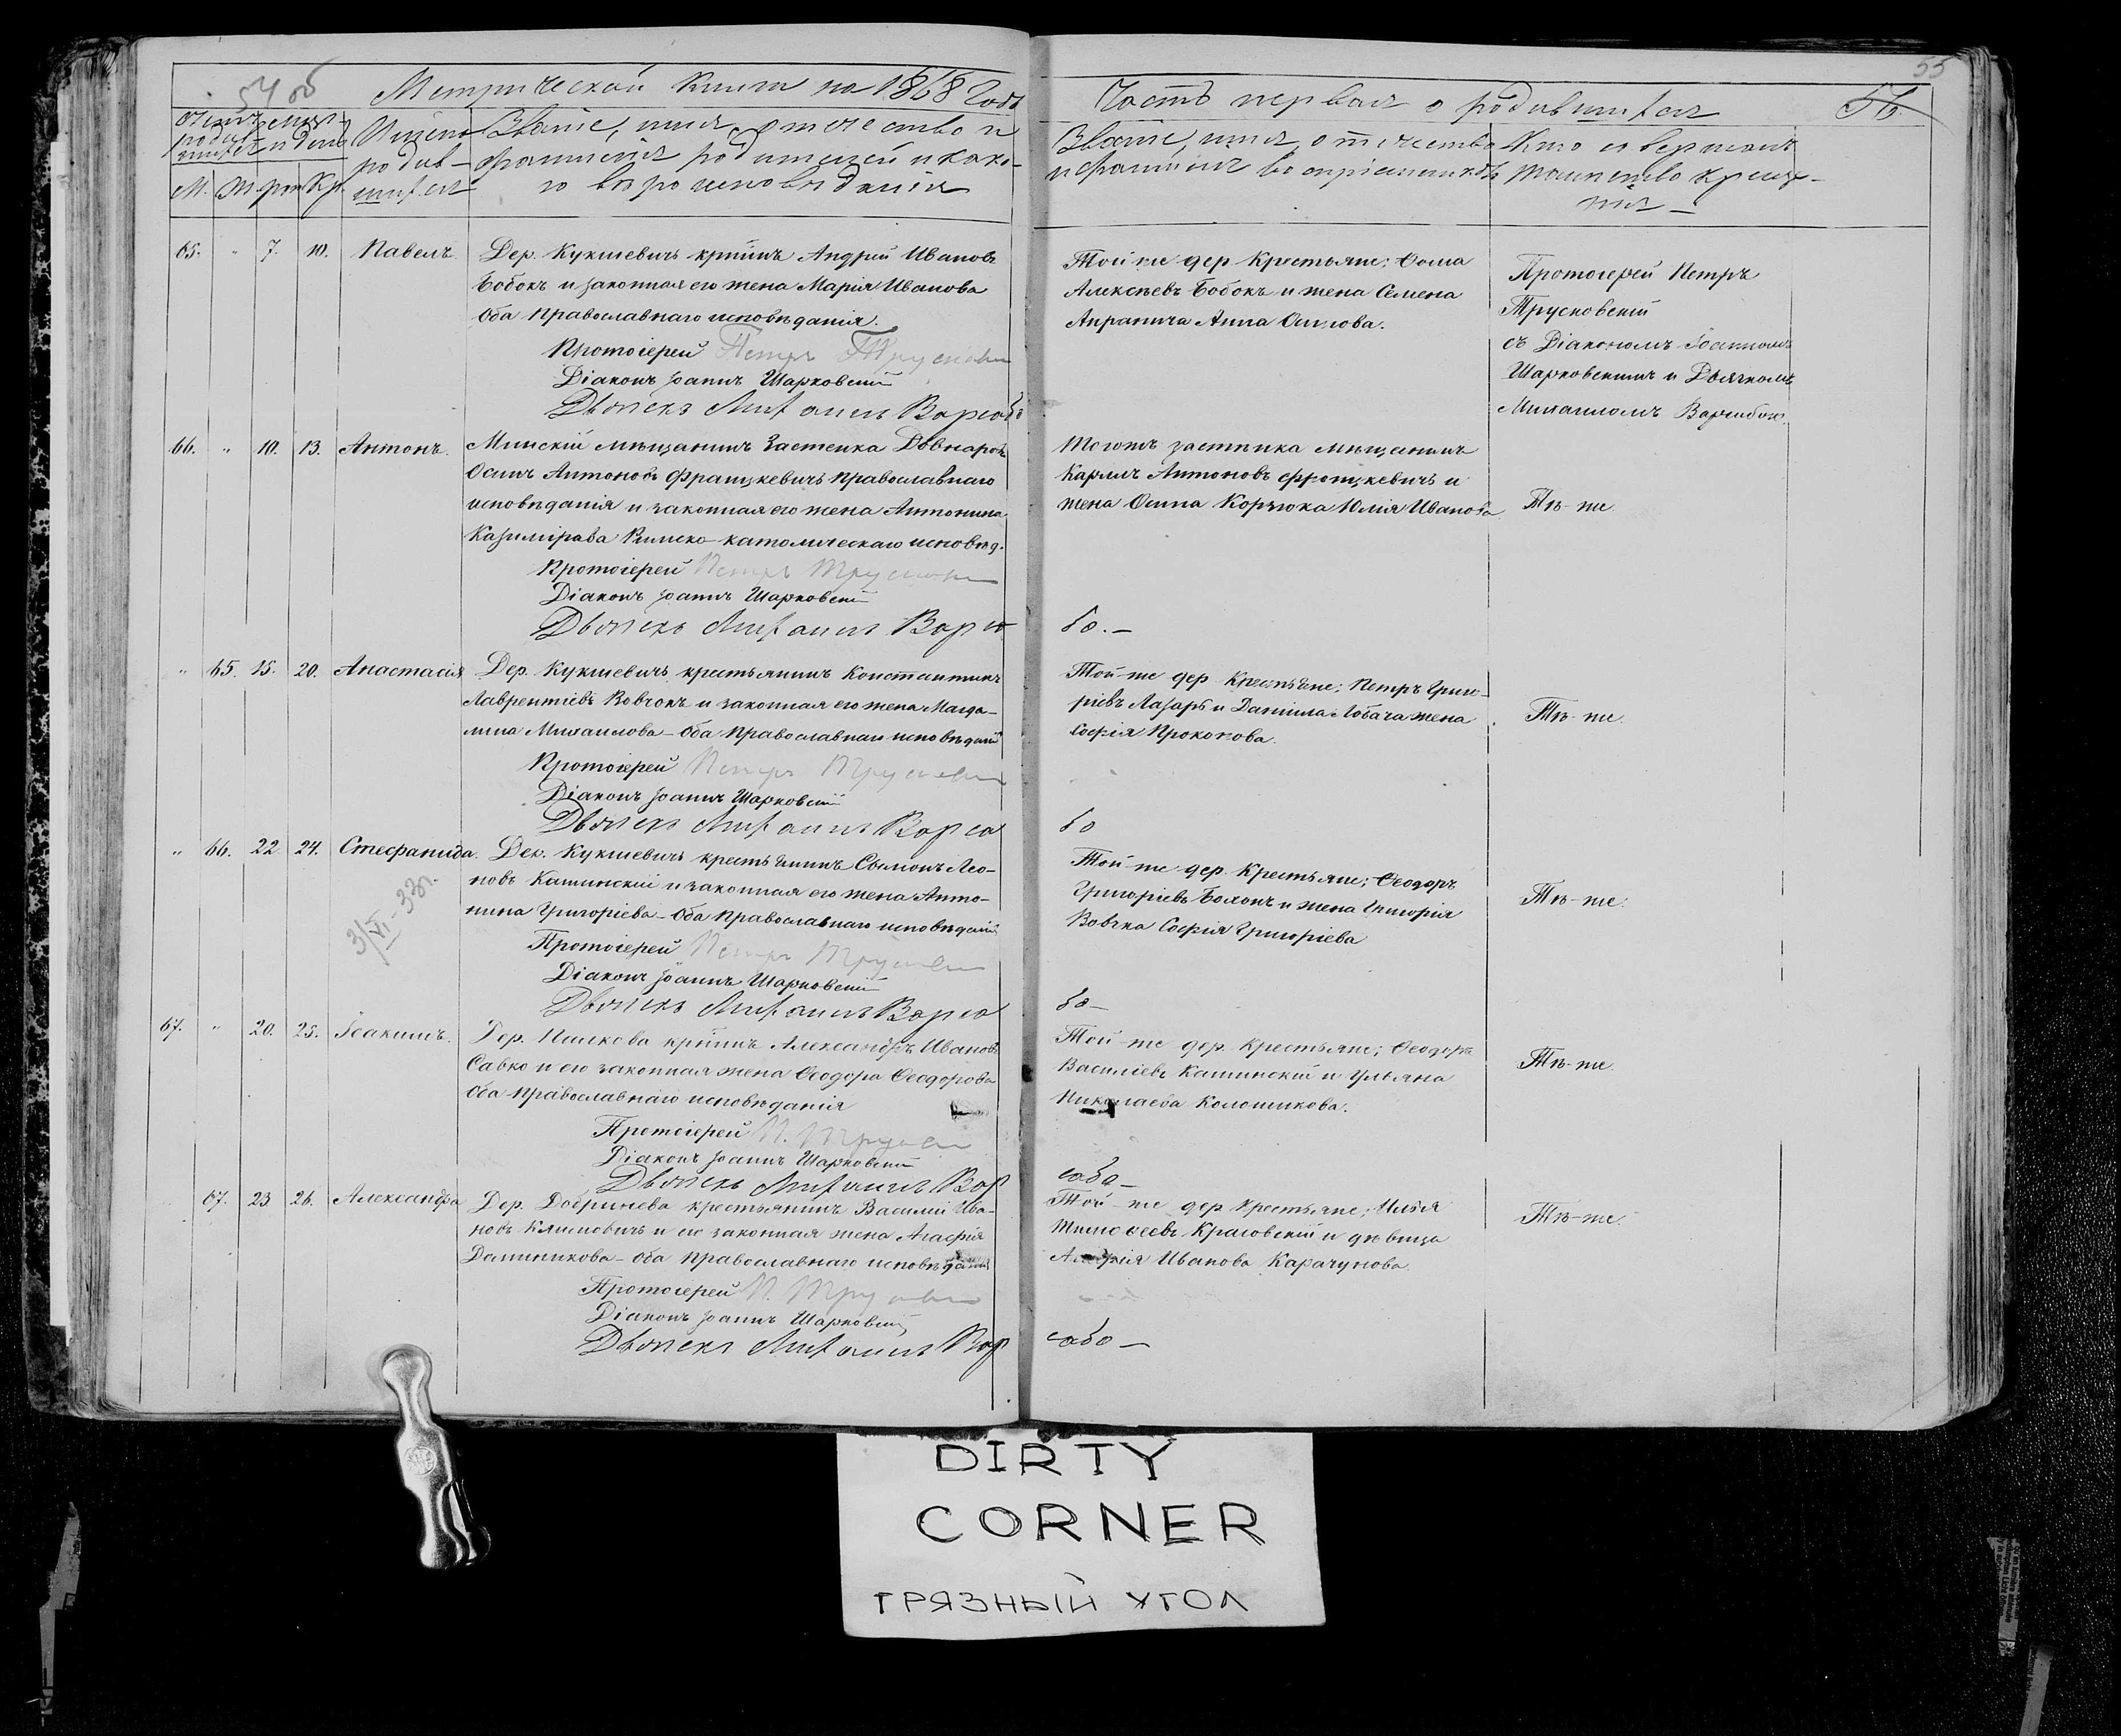 54 об
Метрической книги на 1868 Годъ
Счетъ
родив-
шихся и день
М. Ж. рож Кр.
Имена
родив-
шихся
Званіе, имя, отчество и
фамилія родителей и како-
го вѣроисповѣданія
65. " 7. 10. Павелъ.
Дер. Кукшевичъ крнинъ Андрей Ивановъ
Бобокъ и законная его жена Марія Иванова
Оба православнаго исповѣданія.
Протоіерей Петръ Трусковскій
Діаконъ Іоаннъ Шарковскій
Дьячекъ Михаилъ Варсо
66. " 10. 13. Антонъ.
Минскій мѣщанинъ Застенка Довнаровъ
Осипъ Антоновъ Францкевичъ православнаго
исповѣданія и законная его жена Антонина
Казимірава Римско-католическаго исповѣд.
Протоіерей Петръ Трусковскій
Діаконъ Іоаннъ Шарковскій
Дьячекъ Михаилъ Варсо
" 65. 15. 20. Анастасія
Дер. Кукшевичъ крестьянинъ Константинъ
Лаврентіевъ Вовчокъ и законная его жена Магда-
лина Михаилова - Оба православнаго исповѣданій
Протоіерей Петръ Трусковскій
Діаконъ Іоаннъ Шарковскій
Дьячекъ Михаилъ Варсо
" 66. 22 24. Стефанида.
3/VI-33г.
Дер. Кукшевичъ крестьянинъ Сѵмонъ Лео-
новъ Кашинскій и законная его жена Анто-
нина Григоріева - Оба православнаго исповѣданій
Протоіерей Петръ Трусковскій
Діаконъ Іоаннъ Шарковскій
Дьячекъ Михаилъ Варсо
67. " 20. 25. Іоакимъ.
Дер. крнинъ Александръ Ивановъ
Савко и его законная жена Ѳеодора Ѳеодорова
Оба православнаго исповѣданія
Протоіерей П. Трусковскій
Діаконъ Іоаннъ Шарковскій
Дьячекъ Михаилъ Вар
67. 23 26. Александра
Дер. Добринева крестьянинъ Василій Ива-
новъ Климовичъ и его законная жена Агафія
Даминикова - Оба православнаго исповѣданій
Протоіерей П. Трусковскій
Діаконъ Іоаннъ Шарковскій
Дьячекъ Михаилъ Вар
55
Часть первая о родившихся
56.
Званіе, имя, отчество
и фамилія воспріемниковъ
Кто совершалъ
таинство креще-
нія -
Той-же дер. Крестьяне; Ѳома
Алексѣевъ Бобокъ и жена Семена
Анна Осипова.
Протоіерей Петръ
Трусковскій
съ Діакономъ Іоанномъ
Шарковскимъ и Дьячкомъ
Михаиломъ
бо
Тогожъ застѣнка мѣщанинъ
Карлъ Антоновъ Францкевичъ и
жена Осипа Корзюка Юлія Иванова
Тѣ-же.
бо. -
Той-же дер. Крестьяне; Петръ Григо-
ріевъ Лазарь и Даніила Лобача жена
Софія Прокопова.
Тѣ-же.
бо
Той-же дер. Крестьяне; Ѳеодоръ
Григоріевъ и жена Григорія
Вовчка Софія Григоріева
Тѣ-же.
бо -
Той-же дер. Крестьяне; Ѳеодоръ
Василіевъ Кашинскій и Ульяна
Николаева Колошикова.
Тѣ-же.
собо -
Той-же дер. Крестьяне; Илья
Тимоѳеевъ Красовскій и дѣвица
Иванова Карачунова.
Тѣ-же.
собо -
DIRTY
CORNER
ГРЯЗНЫЙ УГОЛ